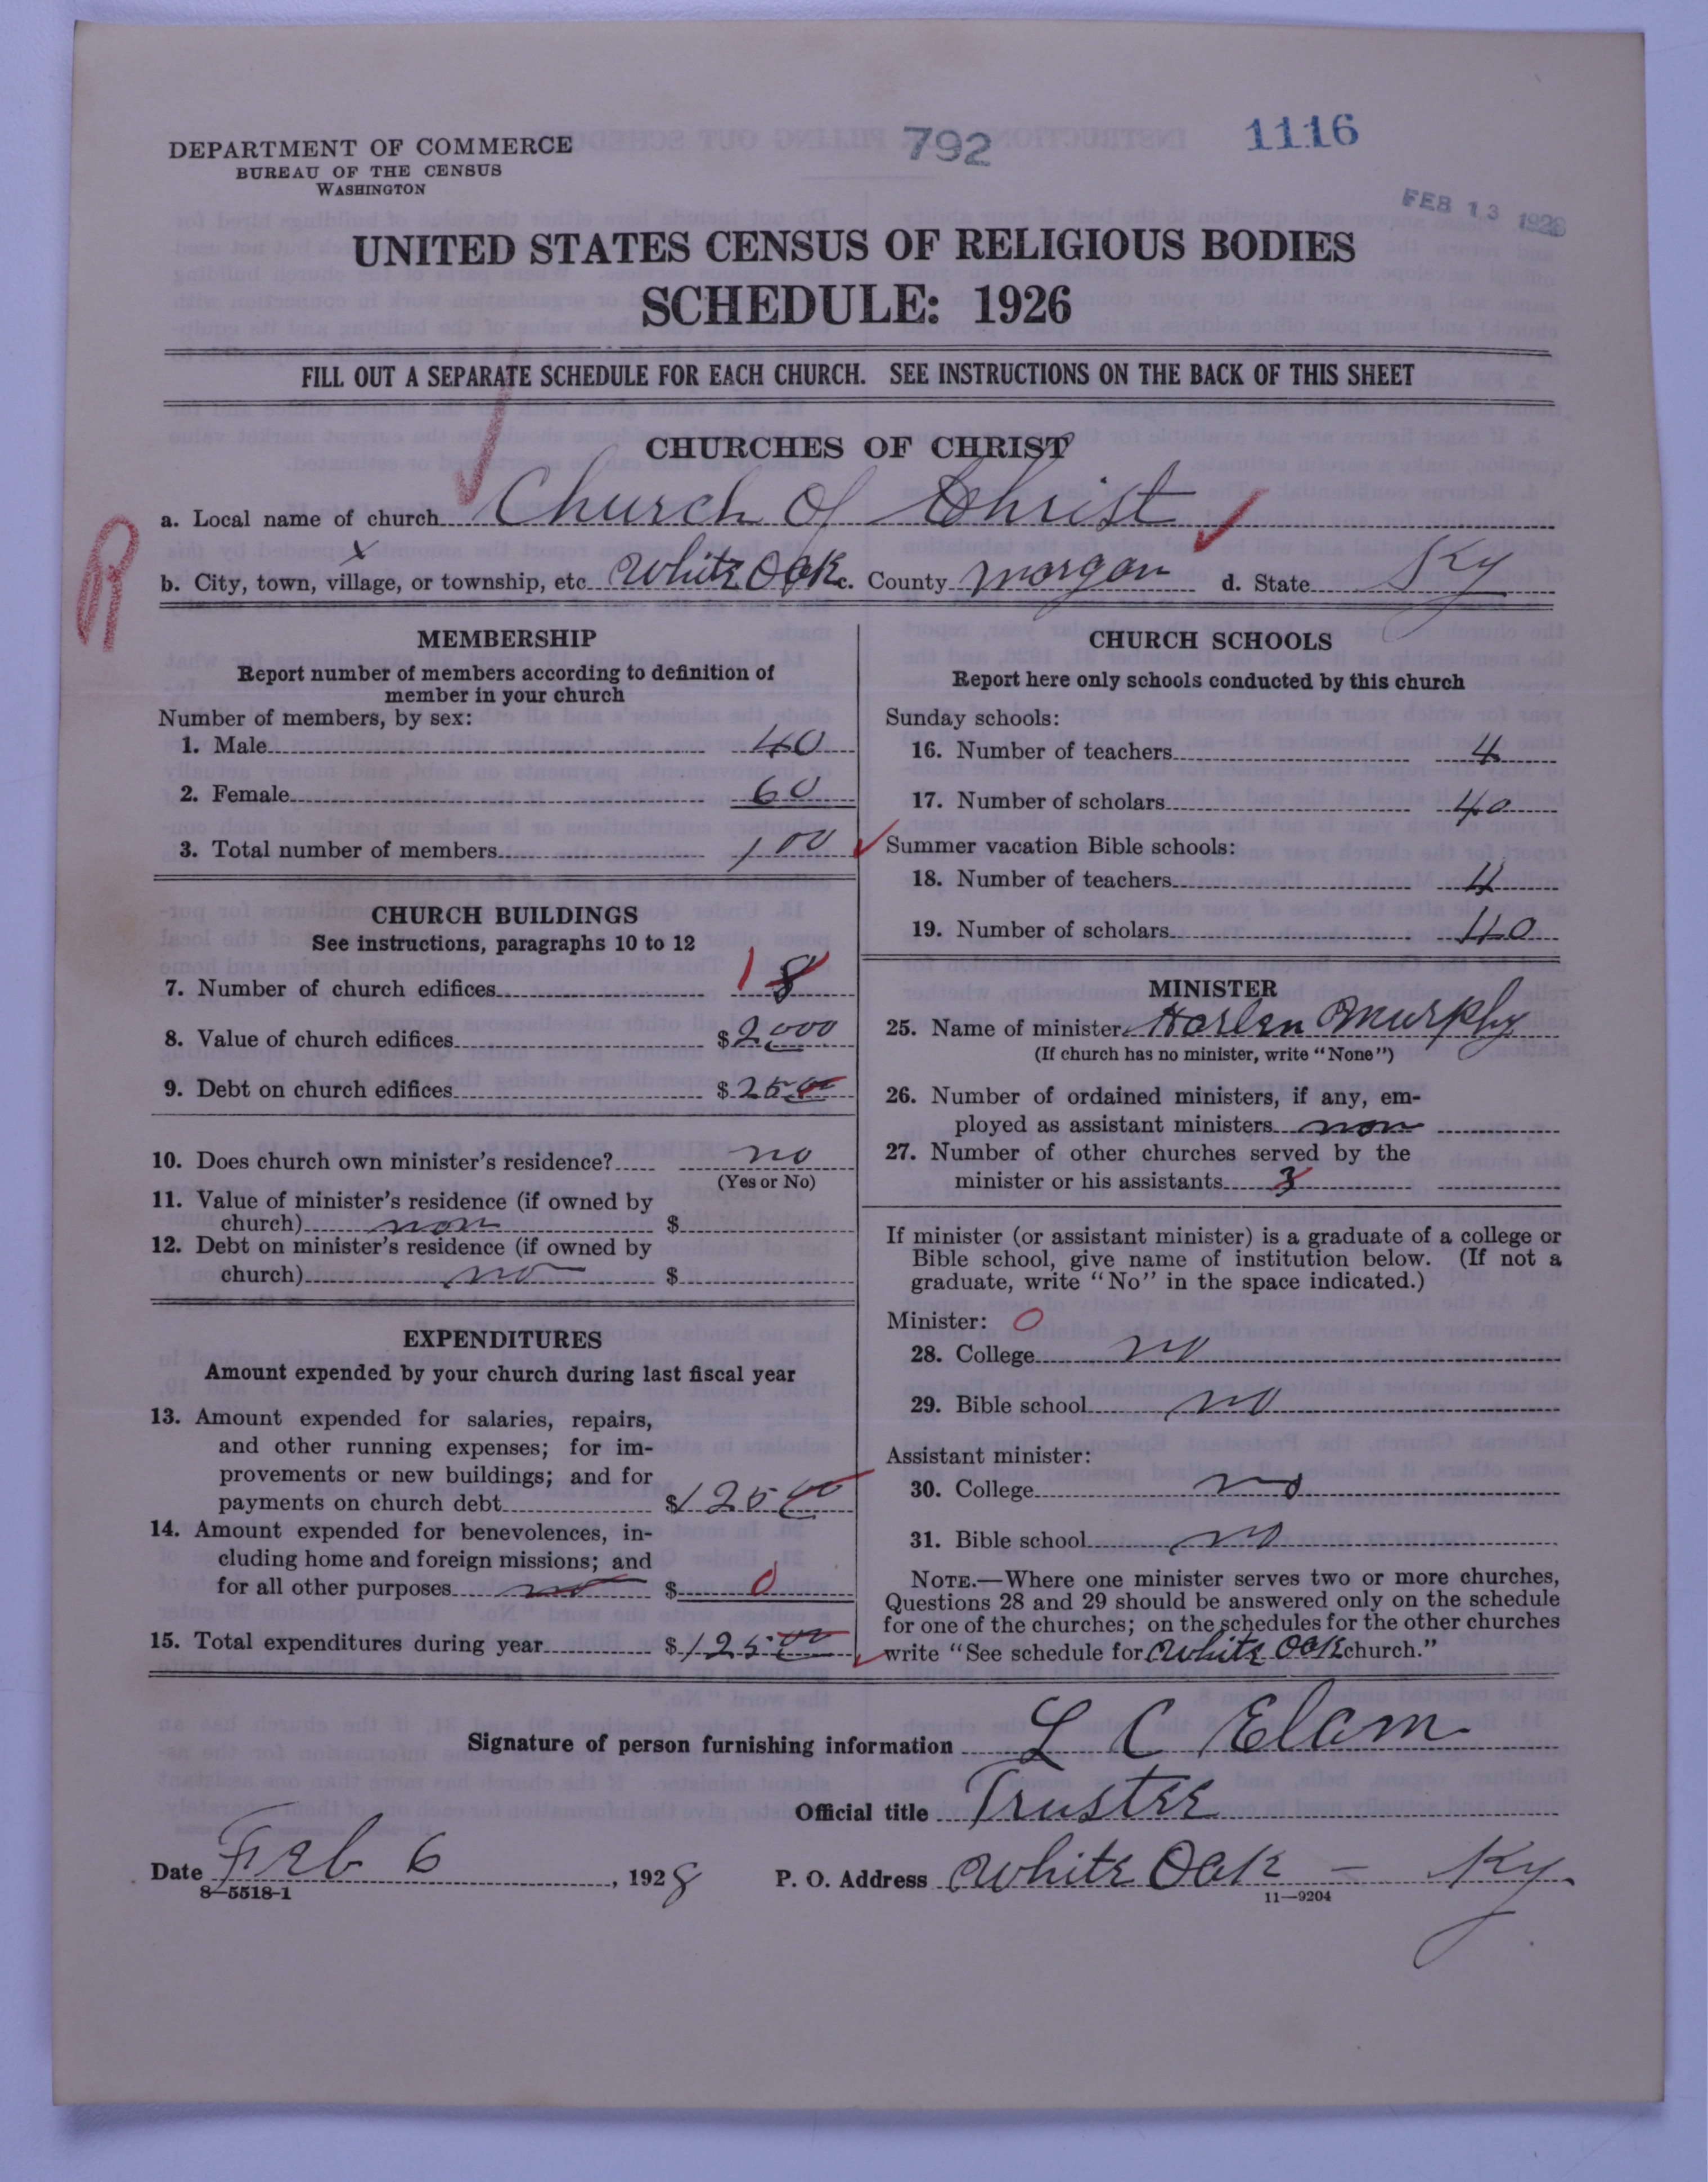 792
1116
DEPARTMENT OF COMMERCE
BUREAU OF THE CENSUS
WASHINGTON
FEB 13 1928
UNITED STATES CENSUS OF RELIGIOUS BODIES
SCHEDULE: 1926
FILL OUT A SEPARATE SCHEDULE FOR EACH CHURCH. SEE INSTRUCTIONS ON THE BACK OF THIS SHEET
CHURCHES OF CHRIST
a. Local name of church Church of Christ
b. City, town, village, or township, etc. White Oak c. County morgan d. State Ky
R
MEMBERSHIP
Report number of members according to definition of
member in your church
Number of members, by sex:
1. Male 40
2. Female 60
3. Total number of members 100
CHURCH BUILDINGS
See instructions, paragraphs 10 to 12
7. Number of church edifices 1 8
8. Value of church edifices $2000
9. Debt on church edifices $25 00
10. Does church own minister's residence? no
(Yes or No)
11. Value of minister's residence (if owned by
church) non $
12. Debt on minister's residence (if owned by
church) no $
EXPENDITURES
Amount expended by your church during last fiscal year
13. Amount expended for salaries, repairs,
and other running expenses; for im-
provements or new buildings; and for
payments on church debt $125 00
14. Amount expended for benevolences, in-
cluding home and foreign missions; and
for all other purposes no $ 0
15. Total expenditures during year $125 00
CHURCH SCHOOLS
Report here only schools conducted by this church
Sunday schools:
16. Number of teachers 4
17. Number of scholars 40
Summer vacation Bible schools:
18. Number of teachers 4
19. Number of scholars 40
MINISTER
25. Name of minister Harlen Murphy
(If church has no minister, write "None")
26. Number of ordained ministers, if any, em-
ployed as assistant ministers non
27. Number of other churches served by the
minister or his assistants 3
If minister (or assistant minister) is a graduate of a college or
Bible school, give name of institution below. (If not a
graduate, write "No" in the space indicated.)
Minister: 0
28. College no
29. Bible school no
Assistant minister:
30. College no
31. Bible school no
NOTE.—Where one minister serves two or more churches,
Questions 28 and 29 should be answered only on the schedule
for one of the churches; on the schedules for the other churches
write "See schedule for White Oak church."
Signature of person furnishing information L C Elam
Official title Trustee
Date Feb 6, 1928 P. O. Address White Oak - Ky.
8-5518-1
11-9204